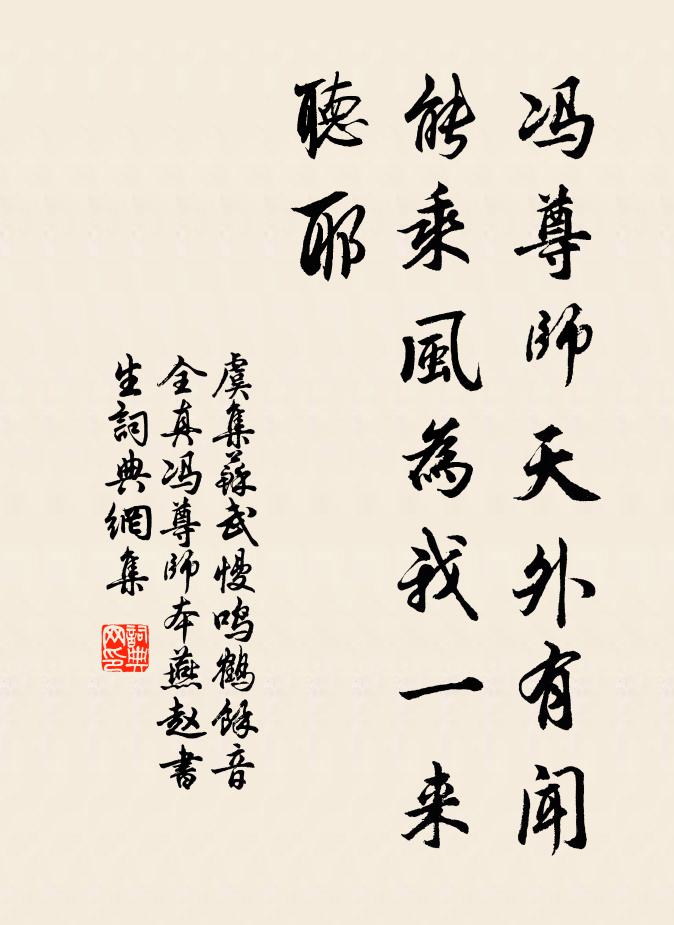 冯尊师天外有闻
能乘風為我一来
聽耶
虞集蘇武慢鸣鶴餘音
全真冯尊師本燕赵書
生詞典網集
詞典
网印